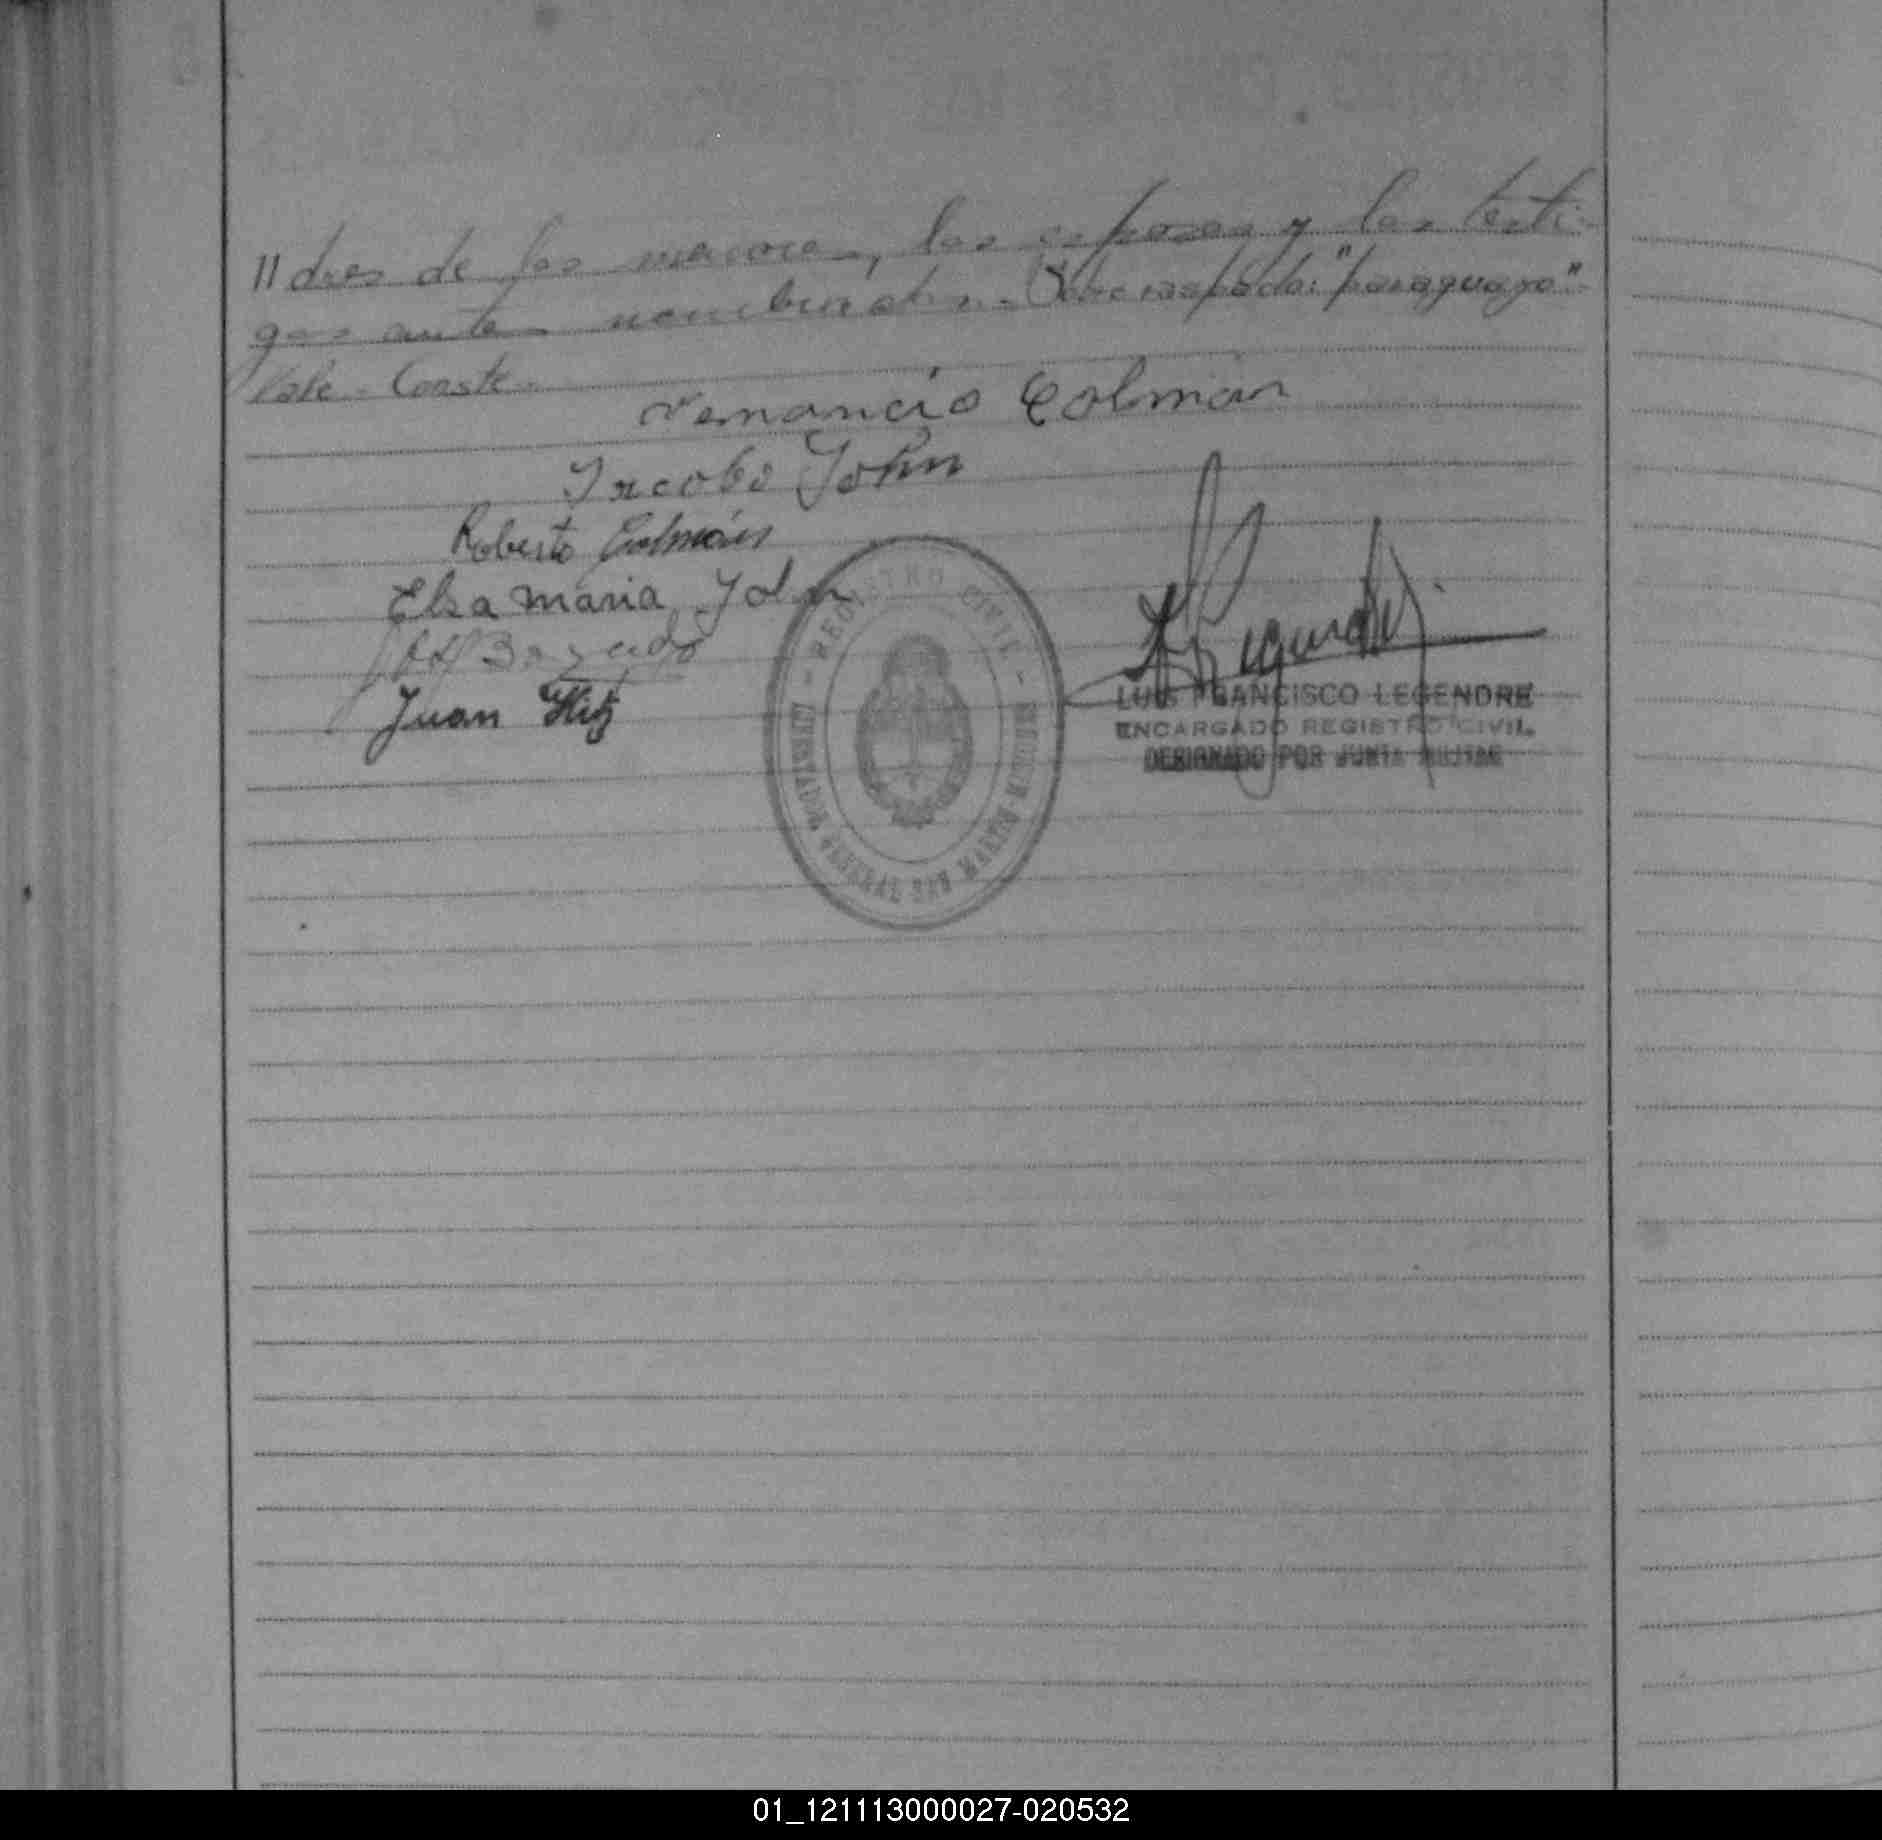 //dres de los menores, los esposos y los testi-
gos antes nombrados.- Sobre raspado: "paraguayo"-
Vale - Conste -
Venancio Colman
Jacobo John
Roberto Colmán
Elsa Maria John
Juan Hitz
REGISTRO CIVIL
LIBERTADOR GENERAL SAN MARTIN
LUIS FRANCISCO LEGENDRE
ENCARGADO REGISTRO CIVIL
DESIGNADO POR JUNTA MILITAR
01_121113000027-020532